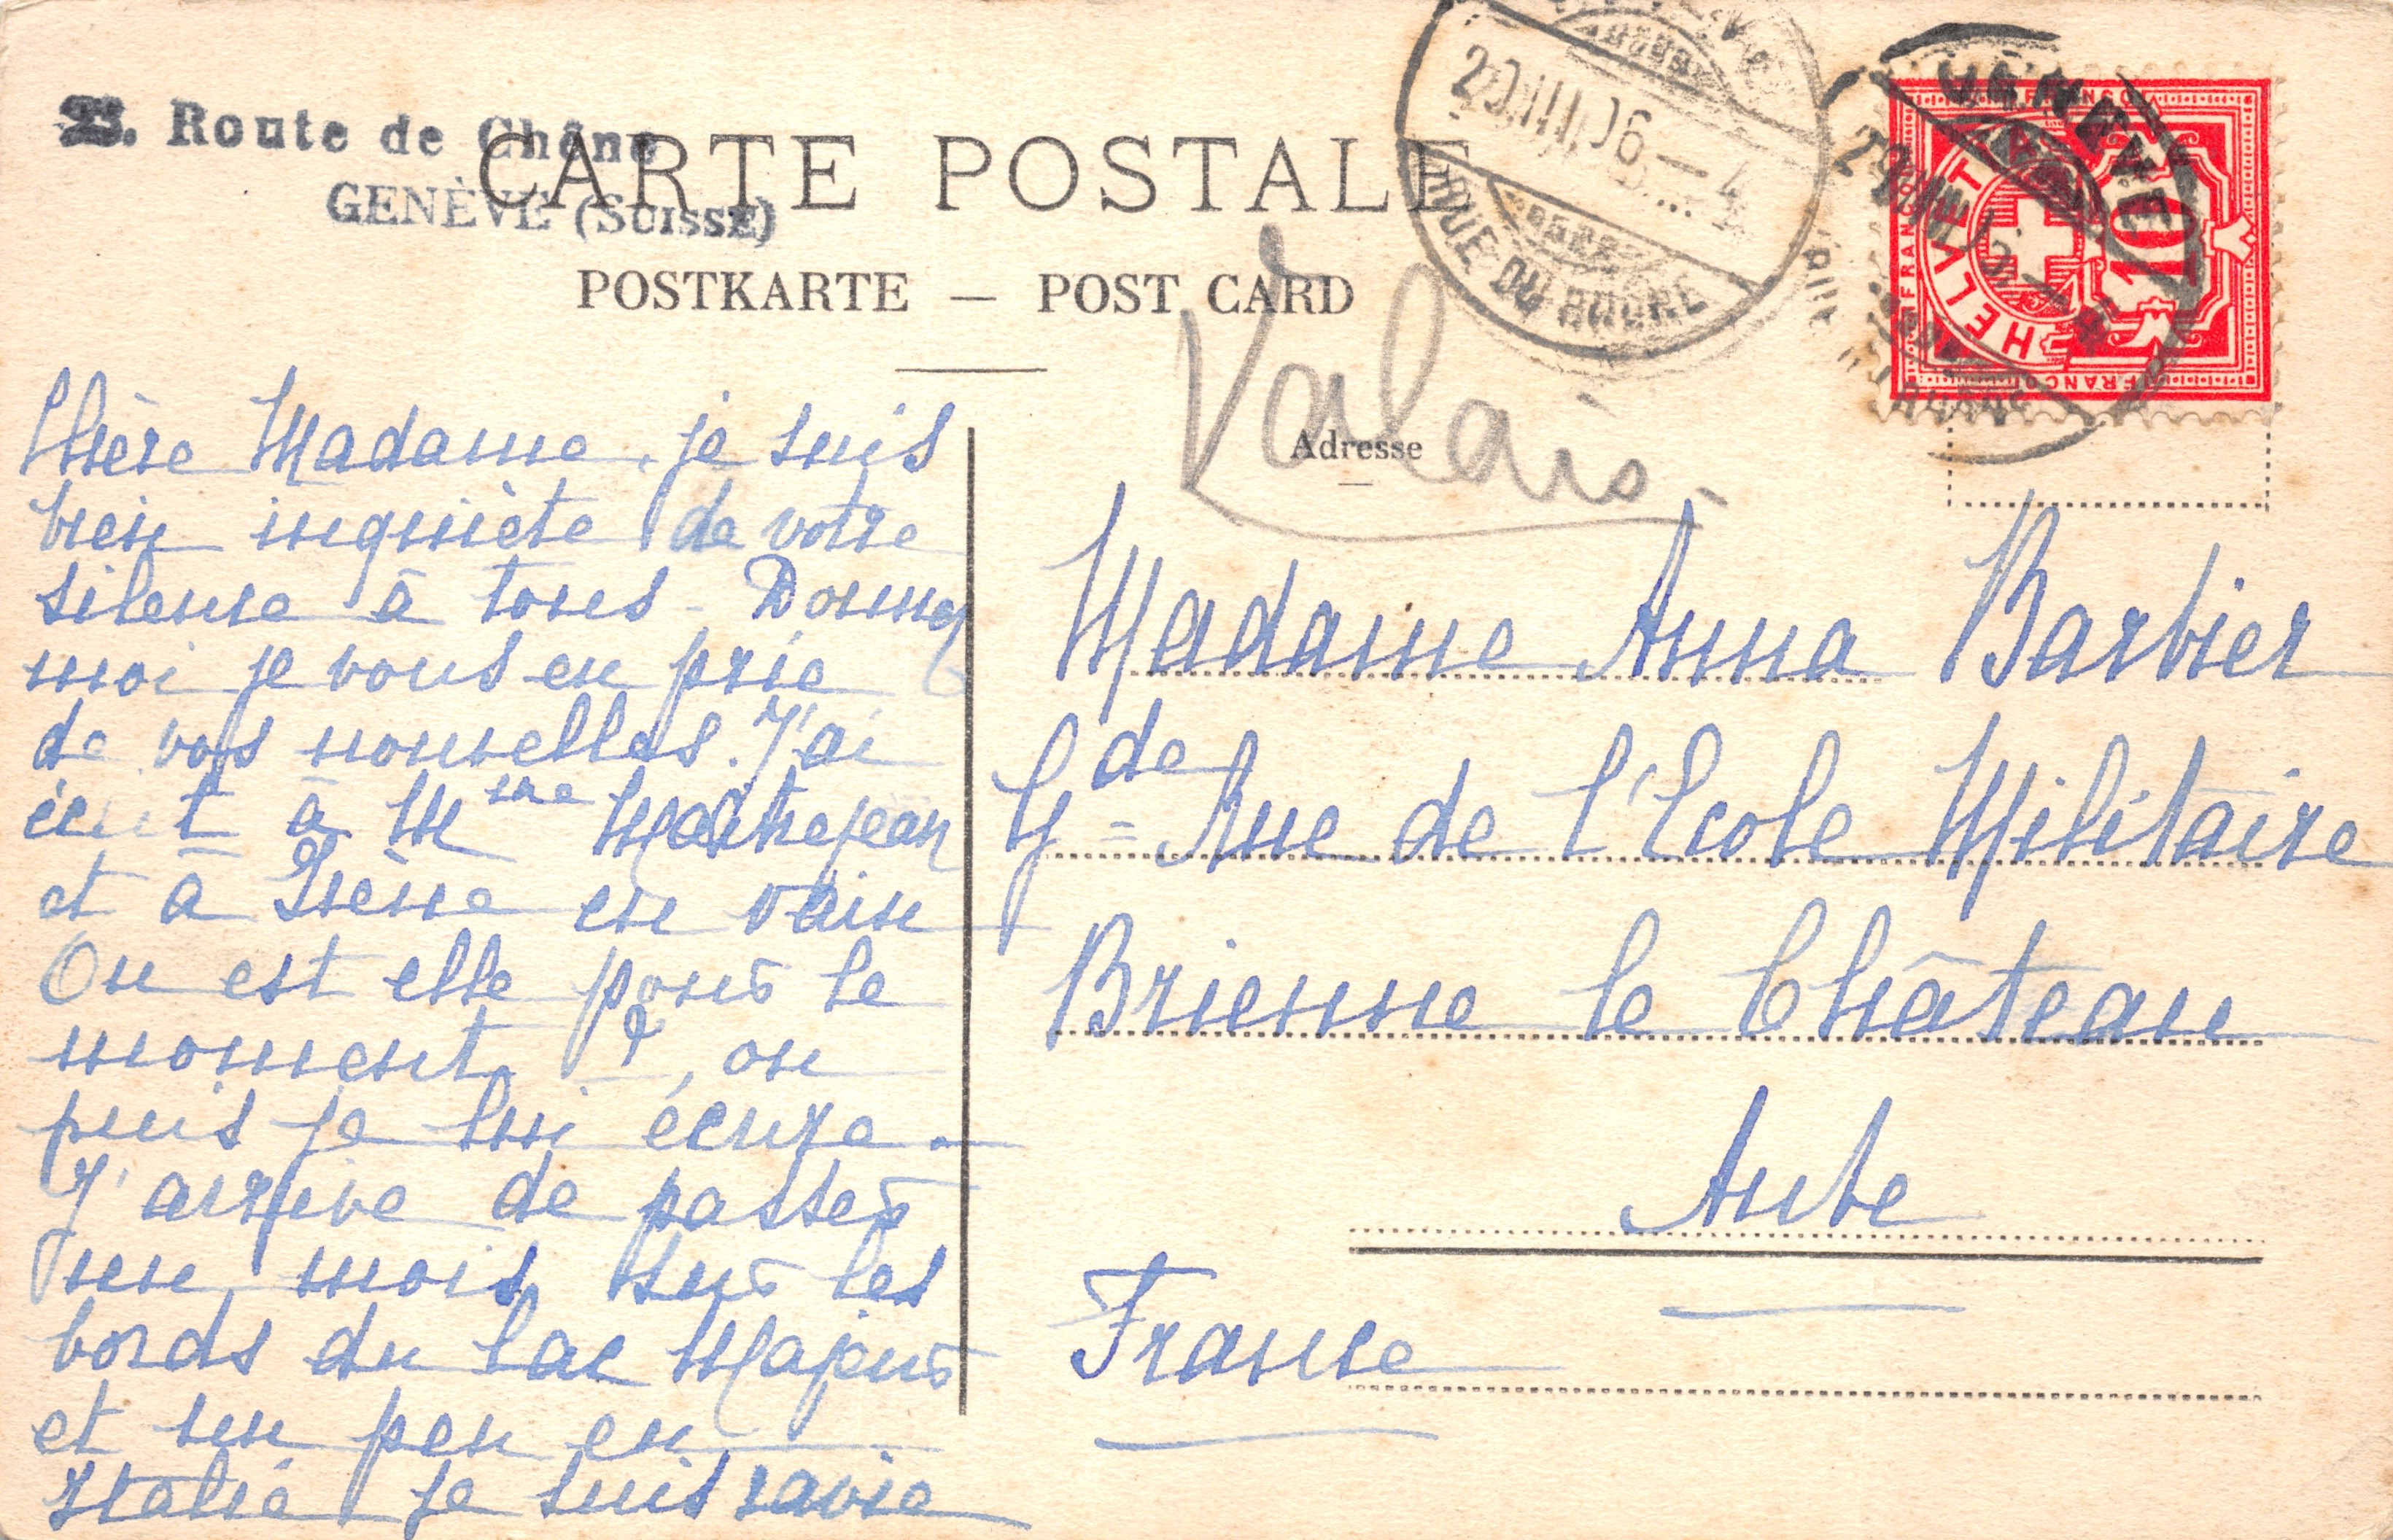 Route de Chêne
GENÈVE (SUISSE)
CARTE POSTALE
POSTKARTE — POST CARD
RUE DU RHONE
GENEVE
FRANCO
HELVETIA
10
Valais
Adresse
Chère Madame, je suis
bien inquiète de votre
silence à tous - Donnez
moi je vous en prie
de vos nouvelles. J'ai
écrit à Mme Maitrejean
et à Irène en vain
Ou est elle pour le
moment ?, ou
puis je lui écrire.
J'arrive de passer
un mois sur les
bords du lac Majeur
et un peu en
Italie je suis ravie
Madame Anna Barbier
Gde Rue de l'Ecole Militaire
Brienne le Château
Aube
France